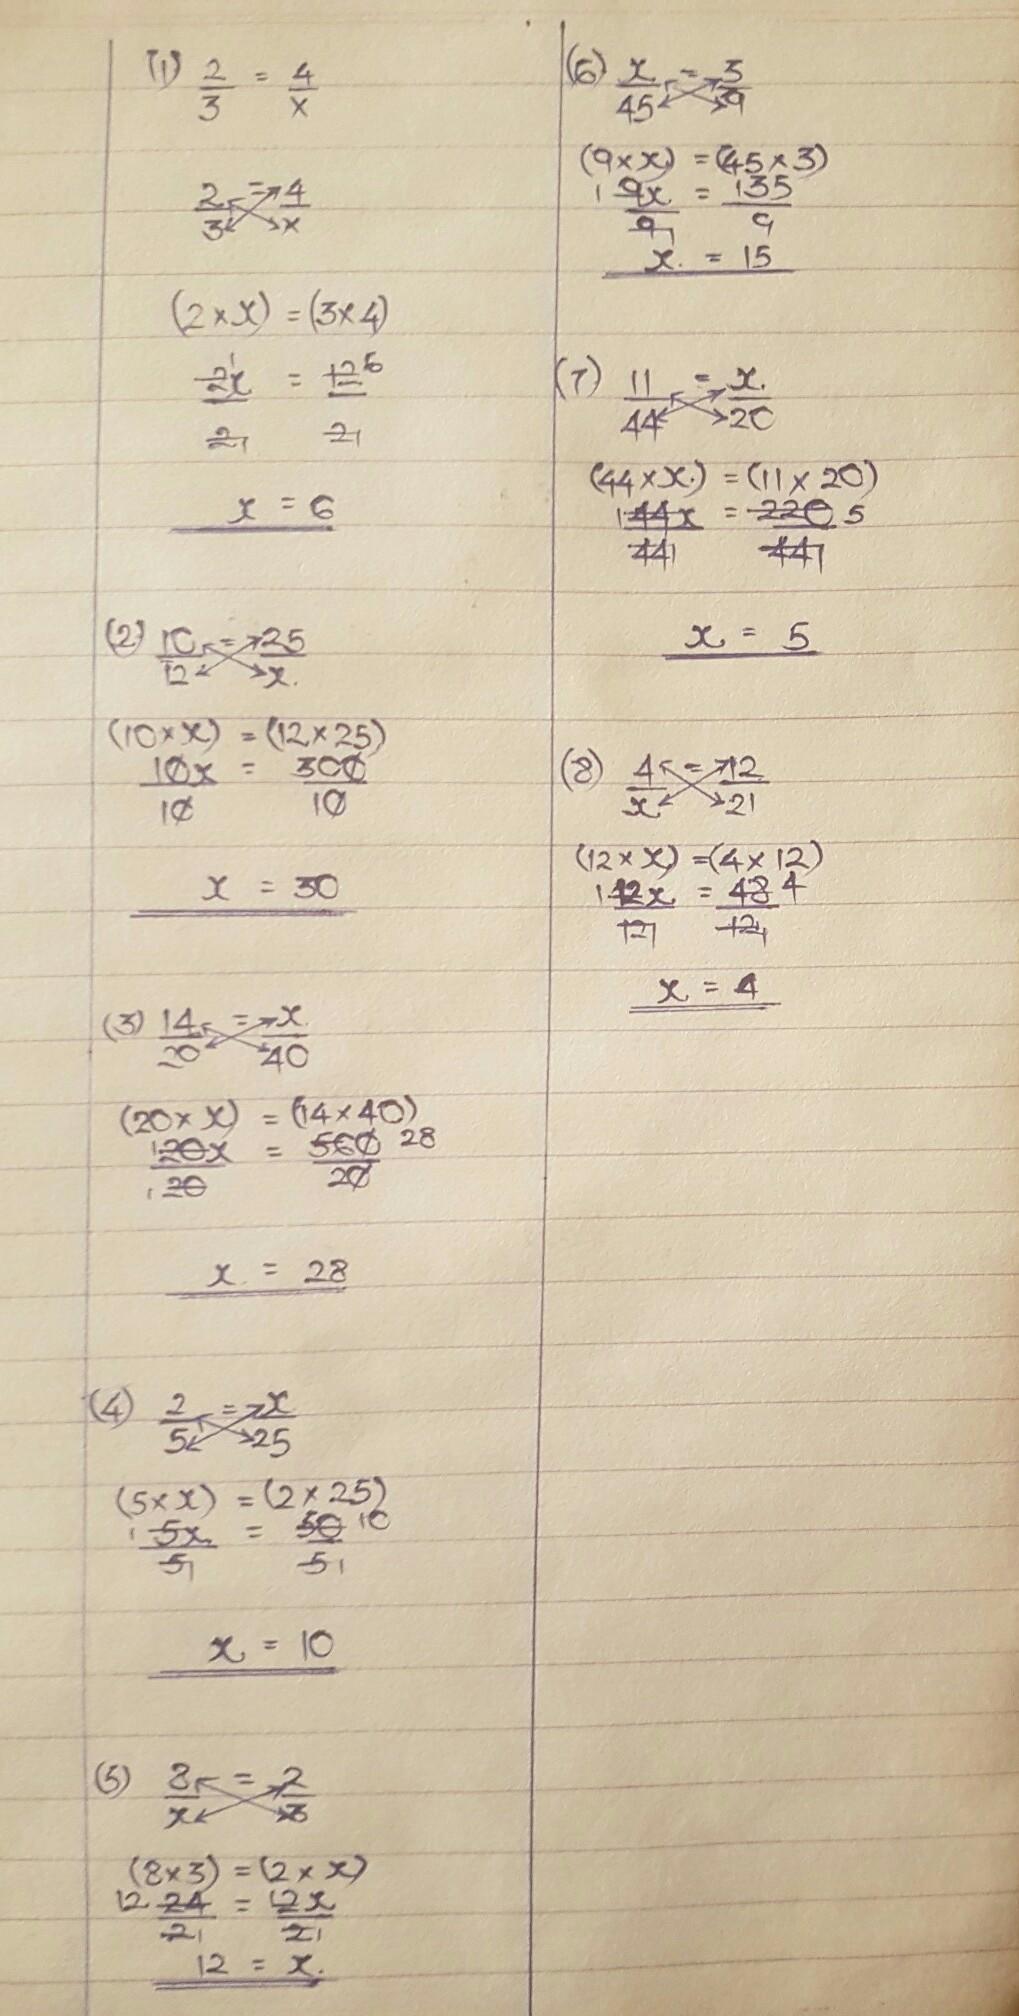 (1) 2/3 = 4/x
2/3 = 4/x
(2 × x) = (3 × 4)
2x/2 = 12/2
x = 6
(2) 10/12 = 25/x
(10 × x) = (12 × 25)
10x/10 = 300/10
x = 30
(3) 14/20 = x/40
(20 × x) = (14 × 40)
20x/20 = 560/20 28
x = 28
(4) 2/5 = x/25
(5 × x) = (2 × 25)
5x/5 = 50/5 10
x = 10
(5) 8/x = 2/3
(8 × 3) = (2 × x)
12 24/2 = 2x/2
12 = x
(6) x/45 = 3/9
(9 × x) = (45 × 3)
9x/9 = 135/9
x = 15
(7) 11/44 = x/20
(44 × x) = (11 × 20)
44x/44 = 220/44 5
x = 5
(8) 4/x = 12/21
(12 × x) = (4 × 12)
12x/12 = 48/12 4
x = 4